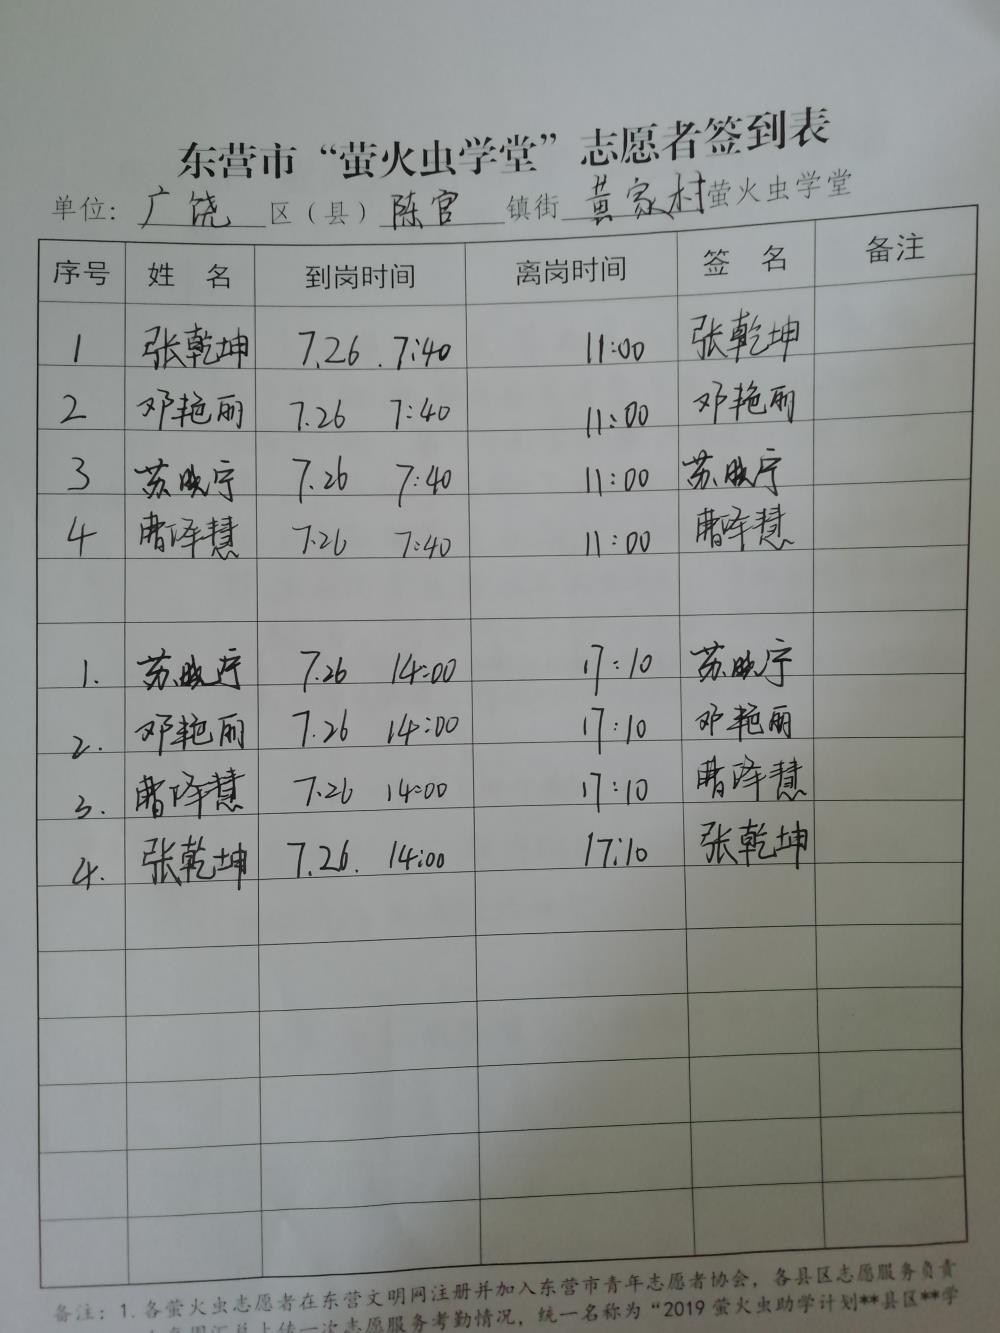 东营市“萤火虫学堂”志愿者签到表
单位：广饶 区（县）陈官 镇街 黄家村萤火虫学堂
序号 姓 名 到岗时间 离岗时间 签 名 备注
1 张乾坤 7.26 7:40 11:00 张乾坤
2 邓艳丽 7.26 7:40 11:00 邓艳丽
3 苏晓宁 7.26 7:40 11:00 苏晓宁
4 曹泽慧 7.26 7:40 11:00 曹泽慧
1. 苏晓宁 7.26 14:00 17:10 苏晓宁
2. 邓艳丽 7.26 14:00 17:10 邓艳丽
3. 曹泽慧 7.26 14:00 17:10 曹泽慧
4. 张乾坤 7.26. 14:00 17:10 张乾坤
备注：1. 各萤火虫志愿者在东营文明网注册并加入东营市青年志愿者协会，各县区志愿服务负责
每周汇总上传一次志愿服务考勤情况，统一名称为“2019萤火虫助学计划**县区**学